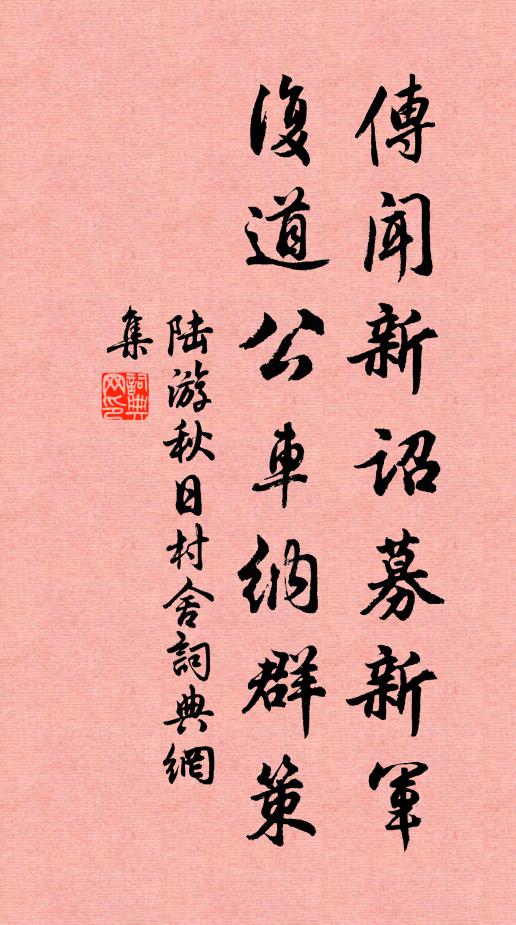 傳聞新詔募新軍
復道公車納群策
陆游秋日村舍詞典網
集
詞典網印